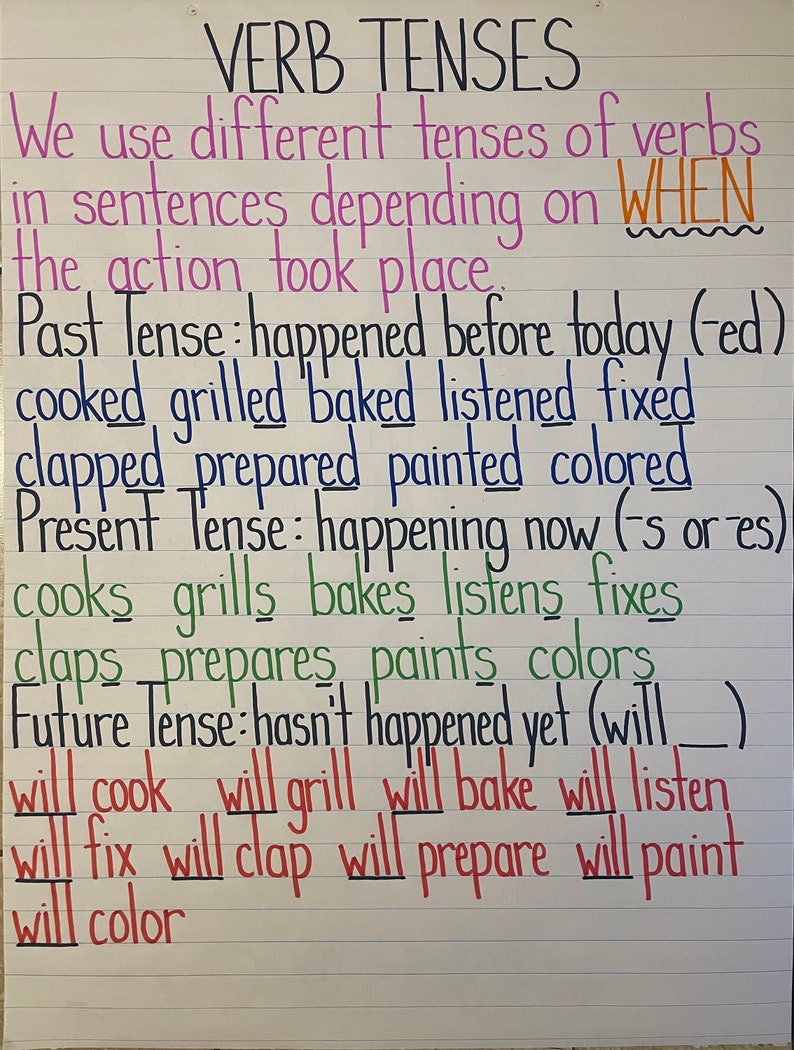 VERB TENSES
We use different tenses of verbs
in sentences depending on WHEN
the action took place.
Past Tense: happened before today (-ed)
cooked grilled baked listened fixed
clapped prepared painted colored
Present Tense: happening now (-s or -es)
cooks grills bakes listens fixes
claps prepares paints colors
Future Tense: hasn't happened yet (will __)
will cook will grill will bake will listen
will fix will clap will prepare will paint
will color